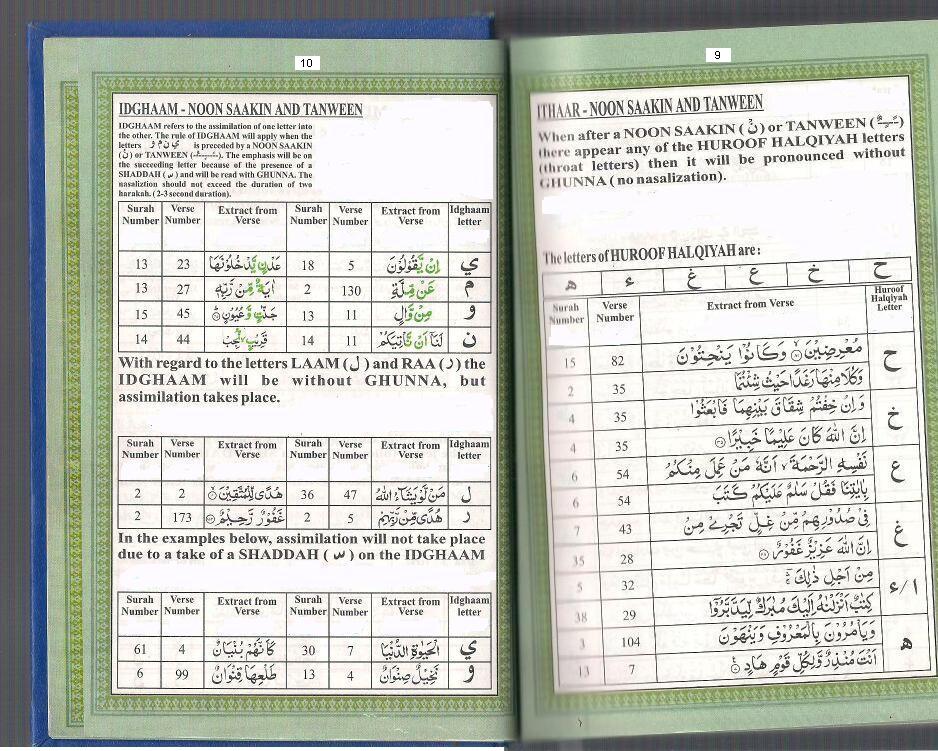 10
IDGHAAM - NOON SAAKIN AND TANWEEN
IDGHAAM refers to the assimilation of one letter into
the other. The rule of IDGHAAM will apply when the
letters ي ن م و is preceded by a NOON SAAKIN
(نْ) or TANWEEN. The emphasis will be on
the succeeding letter because of the presence of a
SHADDAH (س) and will be read with GHUNNA. The
nasaliztion should not exceed the duration of two
harakah. (2-3 second duration).
Surah Number Verse Number Extract from Verse Surah Number Verse Number Extract from Verse Idghaam letter
13 23 عَدْنٍ يَّدْخُلُوْنَهَا 18 5 اِنْ يَّقُوْلُوْنَ ي
13 27 اٰيَةٌ مِّنْ رَّبِّهٖ 2 130 عَنْ مِّلَّةِ م
15 45 جَنّٰتٍ وَّعُيُوْنٍ 13 11 مِنْ وَّالٍ و
14 44 قَرِيْبٍ نُّجِبْ 14 11 لَنَآ اَنْ نَّاْتِيَكُمْ ن
With regard to the letters LAAM (ل) and RAA (ر) the
IDGHAAM will be without GHUNNA, but
assimilation takes place.
Surah Number Verse Number Extract from Verse Surah Number Verse Number Extract from Verse Idghaam letter
2 2 هُدًى لِّلْمُتَّقِيْنَ 36 47 مَنْ لَّوْ يَشَآءُ اللّٰهُ ل
2 173 غَفُوْرٌ رَّحِيْمٌ 2 5 هُدًى مِّنْ رَّبِّهِمْ ر
In the examples below, assimilation will not take place
due to a take of a SHADDAH (س) on the IDGHAAM
Surah Number Verse Number Extract from Verse Surah Number Verse Number Extract from Verse Idghaam letter
61 4 كَاَنَّهُمْ بُنْيَانٌ 30 7 الْحَيٰوةِ الدُّنْيَا ي
6 99 طَلْعِهَا قِنْوَانٌ 13 4 نَخِيْلٌ صِنْوَانٌ و
9
ITHAAR - NOON SAAKIN AND TANWEEN
When after a NOON SAAKIN (نْ) or TANWEEN
there appear any of the HUROOF HALQIYAH letters
(throat letters) then it will be pronounced without
GHUNNA (no nasalization).
The letters of HUROOF HALQIYAH are:
ح خ ع غ ء ه
Surah Number Verse Number Extract from Verse Huroof Halqiyah Letter
15 82 مُعْرِضِيْنَ وَكَانُوْا يَنْحِتُوْنَ ح
2 35 وَكُلَا مِنْهَا رَغَدًا حَيْثُ شِئْتُمَا
4 35 وَاِنْ خِفْتُمْ شِقَاقَ بَيْنِهِمَا فَابْعَثُوْا خ
4 35 اِنَّ اللّٰهَ كَانَ عَلِيْمًا خَبِيْرًا
6 54 نَفْسِهِ الرَّحْمَةَ اَنَّهٗ مَنْ عَمِلَ مِنْكُمْ ع
6 54 بِاٰيٰتِنَا فَقُلْ سَلٰمٌ عَلَيْكُمْ كَتَبَ
7 43 فِيْ صُدُوْرِهِمْ مِّنْ غِلٍّ تَجْرِيْ مِنْ غ
35 28 اِنَّ اللّٰهَ عَزِيْزٌ غَفُوْرٌ
5 32 مِنْ اَجْلِ ذٰلِكَ ا/ء
38 29 كِتٰبٌ اَنْزَلْنٰهُ اِلَيْكَ مُبٰرَكٌ لِّيَدَّبَّرُوْٓا
3 104 وَيَاْمُرُوْنَ بِالْمَعْرُوْفِ وَيَنْهَوْنَ ه
13 7 اَنْتَ مُنْذِرٌ وَّلِكُلِّ قَوْمٍ هَادٍ